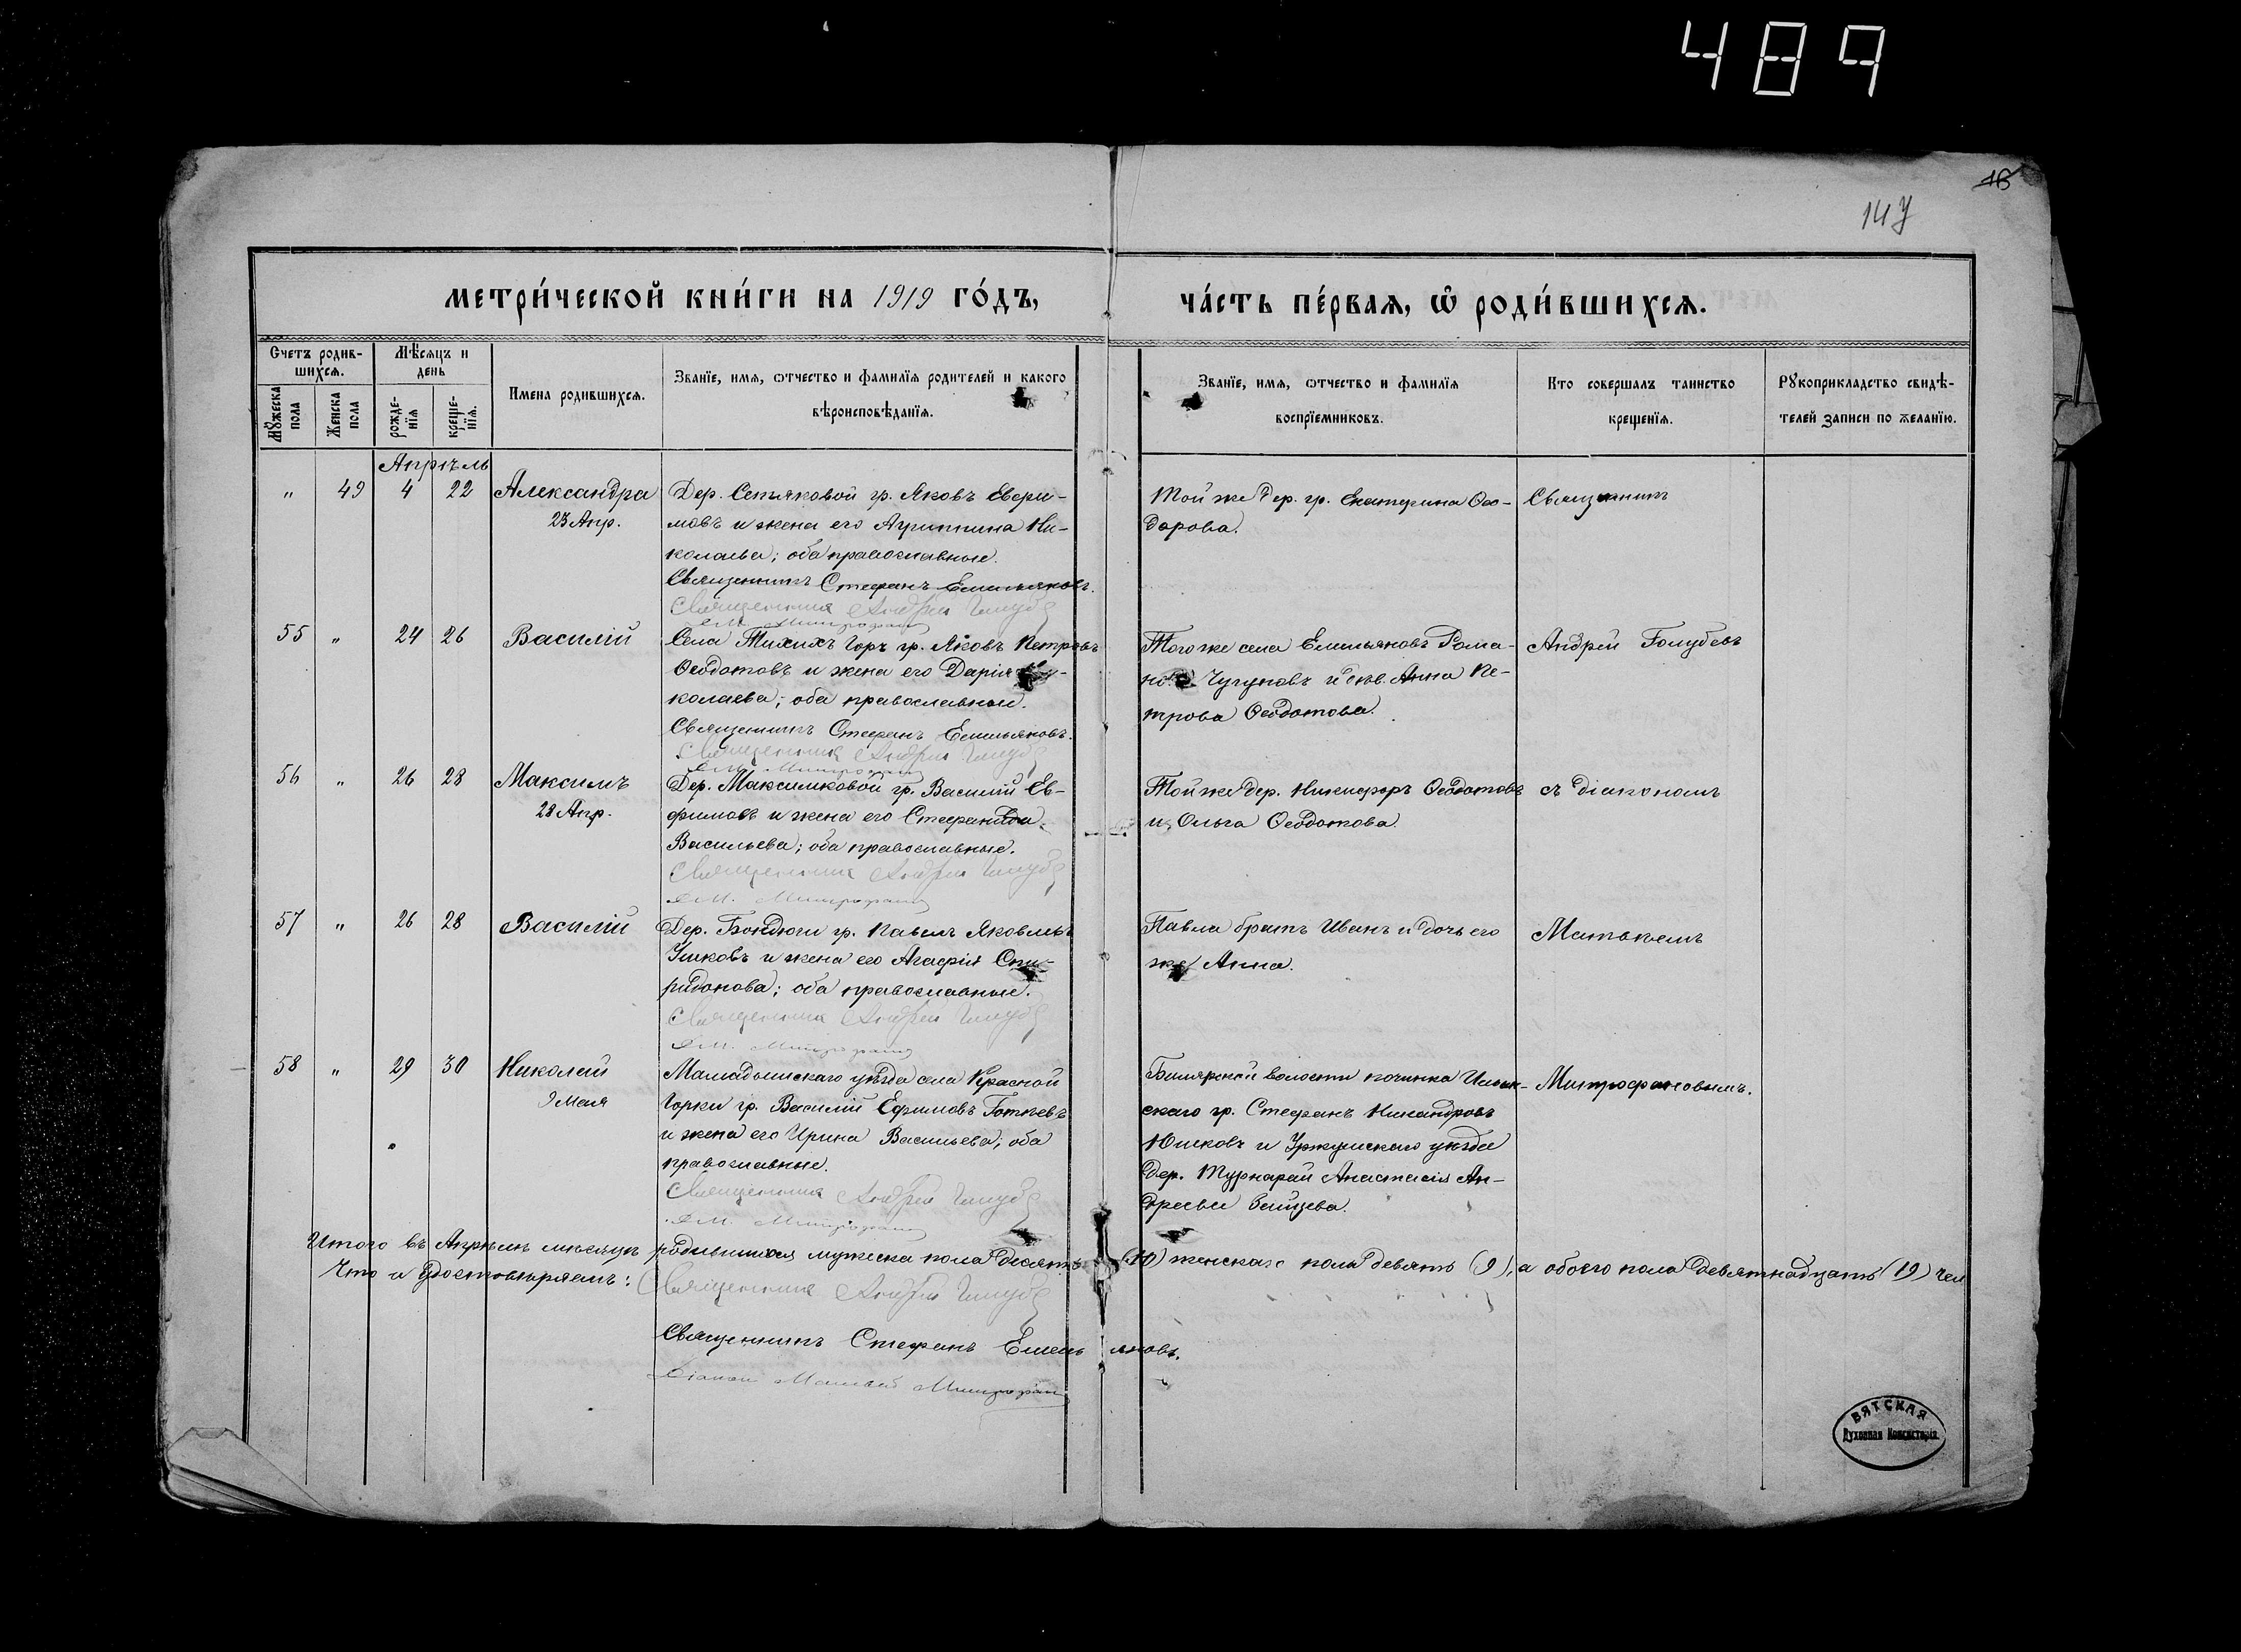 489
18
147
МЕТРИ́ЧЕСКОЙ КНИ́ГИ НА 1919 ГО́ДЪ,
ЧА́СТЬ ПЕ́РВАЯ, Ѡ҆ РОДИ́ВШИХСЯ.
Счетъ родив-
шихся.
Мѣсяцъ и
день
Мужеска
пола
Женска
пола
рожде-
нія
креще-
нія.
Имена родившихся.
Званїе, имя, ѡтчество и фамилїя родителей и какого
вѣроисповѣданїя.
Званїе, имя, ѡтчество и фамилїя
воспрїемниковъ.
Кто совершалъ таинство
крещенїя.
Рукоприкладство свидѣ-
телей записи по желанїю.
Апрѣль
„ 49 4 22 Александра
23 Апр.
Дер. Сетяковой гр. Яковъ Ефри-
мовъ и жена его Агриппина Ни-
колаева; оба православные.
Священникъ Стефанъ Емельяновъ.
Священникъ Андрей
Той же дер. гр. Екатерина Ѳео-
дорова.
Священникъ
55 „ 24 26 Василій
Села Тихихъ Горъ гр. Яковъ Петровъ
Ѳеодотовъ и жена его Дарія
колаева; оба православные.
Священникъ Стефанъ Емельяновъ.
Священникъ Андрей
Того же села Емельяновъ Рома-
Чугуновъ и Анна Пе-
трова Ѳеодотова.
Андрей Голубевъ
56 „ 26 28 Максимъ
28 Апр.
Дер. Максимковой гр. Василій Ев-
фимовъ и жена его Стефанида
Васильева; оба православные.
Священникъ Андрей
Той же дер. Никифоръ Ѳеодотовъ
и Ольга Ѳеодотова.
съ діакономъ
57 „ 26 28 Василій
Дер. Бондюги гр. Павелъ Яковлевъ
Ушковъ и жена его Агафія Спи-
ридонова; оба православные.
Священникъ Андрей
Павла братъ Иванъ и дочь его
же Анна.
Матвѣемъ
58 „ 29 30 Николай
9 Мая
Мамадышскаго уѣзда села Красной
Горки гр. Василій Ефимовъ
и жена его Ирина Васильева; оба
православные.
Священникъ Андрей
Билярской волости починка
скаго гр. Стефанъ Никандровъ
Юшковъ и Уржумскаго уѣзда
дер. Анастасія Ан-
дреева Зайцева.
Митрофановымъ.
Итого въ Апрѣлѣ мѣсяцѣ родившихся мужеска пола десять (10) женскаго пола девять (9), а обоего пола девятнадцать (19) чел
Что и удостовѣряемъ: Священникъ Андрей
Священникъ Стефанъ Емельяновъ.
Діаконъ Матвей
ВЯТСКАЯ
Духовная Консисторія.